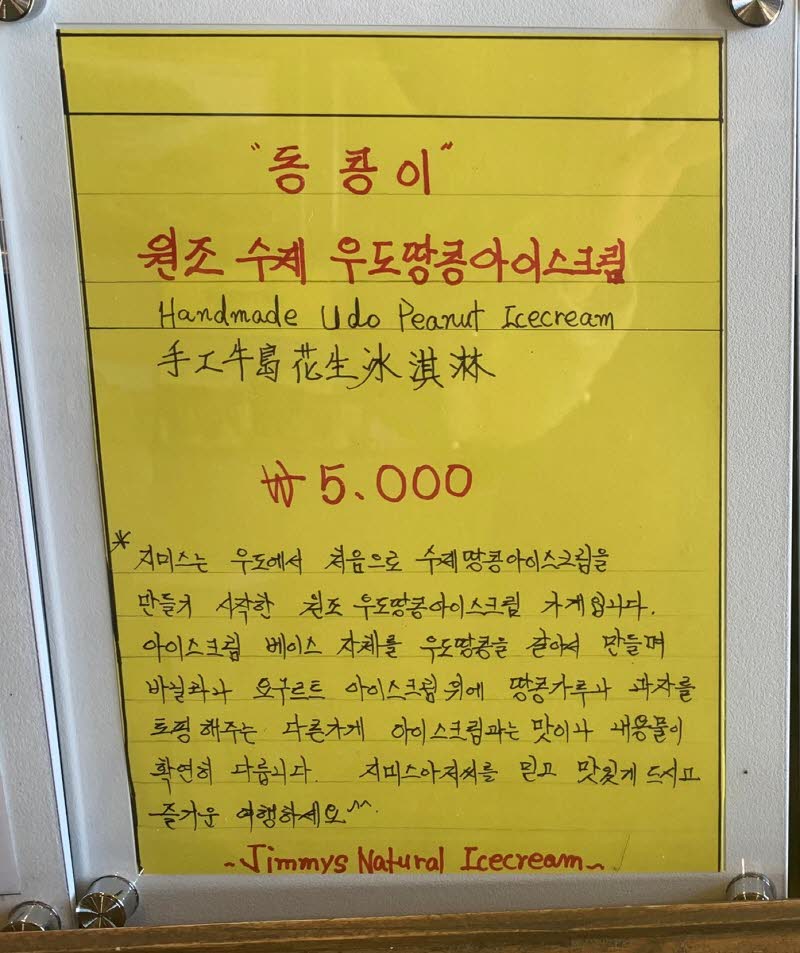 "동콩이"
원조 수제 우도땅콩아이스크림
Handmade Udo Peanut Icecream
手工牛島花生冰淇淋
₩5.000
*지미스는 우도에서 처음으로 수제땅콩아이스크림을
만들기 시작한 원조 우도땅콩아이스크림 가게입니다.
아이스크림 베이스 자체를 우도땅콩을 갈아서 만들며
바닐라나 요구르트 아이스크림위에 땅콩가루나 과자를
토핑해주는 다른가게 아이스크림과는 맛이나 내용물이
확연히 다릅니다. 지미스아저씨를 믿고 맛있게드시고
즐거운 여행하세요^^
~Jimmys Natural Icecream~